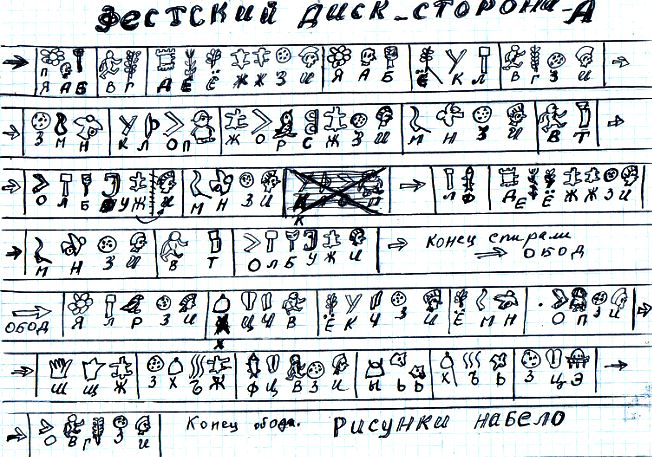 ФЕСТСКИЙ ДИСК-СТОРОНА-А
П
Я А Б В Г Д Е Ё Ж Ж З И Я А Б Ё К Л В Г З И
З М Н К Л О П Ж О Р С Ж З И М Н З И В Т
О Л Б У Ж И М Н З И Л Ф Д Е Ё Ж Ж З И
К
М Н З И В Т О Л Б У Ж И Конец спирали
ОБОД
ОБОД Я Л Р З И Х Ц Ч В Ё К Ч З И Ё М Н О П З И
Х
Ш Щ Ж З Х Ъ Ж Ф Ц В З И Ы Ь Ь Х Ъ Ь З Ц Э
О В Г З И Конец обода. Рисунки набело